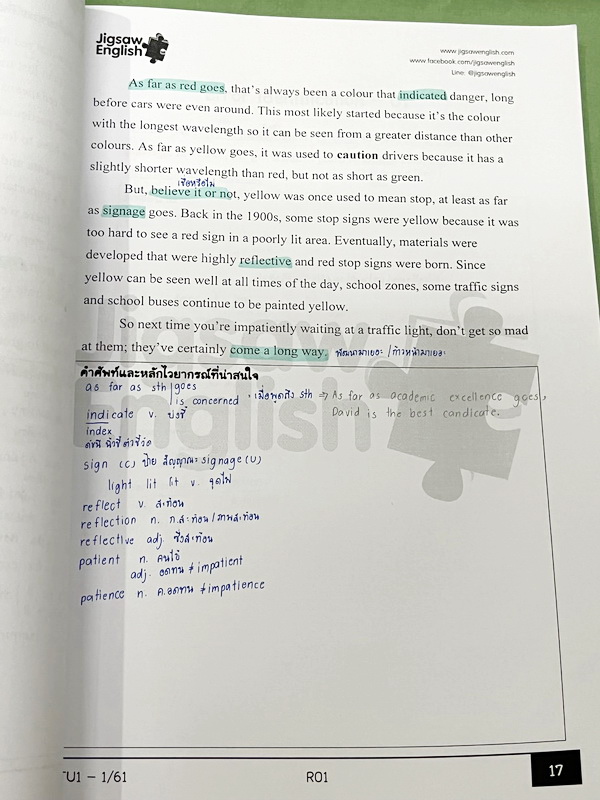 Jigsaw
English
www.jigsawenglish.com
www.facebook.com/jigsawenglish
Line: @jigsawenglish
As far as red goes, that's always been a colour that indicated danger, long
before cars were even around. This most likely started because it's the colour
with the longest wavelength so it can be seen from a greater distance than other
colours. As far as yellow goes, it was used to caution drivers because it has a
slightly shorter wavelength than red, but not as short as green.
เชื่อหรือไม่
But, believe it or not, yellow was once used to mean stop, at least as far
as signage goes. Back in the 1900s, some stop signs were yellow because it was
too hard to see a red sign in a poorly lit area. Eventually, materials were
developed that were highly reflective and red stop signs were born. Since
yellow can be seen well at all times of the day, school zones, some traffic signs
and school buses continue to be painted yellow.
So next time you're impatiently waiting at a traffic light, don't get so mad
at them; they've certainly come a long way. พัฒนามาเยอะ / ก้าวหน้ามาเยอะ
คำศัพท์และหลักไวยากรณ์ที่น่าสนใจ
as far as sth goes
is concerned = เมื่อพูดถึง sth ⇒ As far as academic excellence goes,
David is the best candicate.
indicate v. บ่งชี้
index
ดัชนี นิ้วชี้ ตัวชี้วัด
sign (C) ป้าย สัญญาณ signage (U)
light lit lit v. จุดไฟ
reflect v. สะท้อน
reflection n. ก.สะท้อน / ภาพสะท้อน
reflective adj. ซึ่งสะท้อน
patient n. คนไข้
adj. อดทน ≠ impatient
patience n. ค.อดทน ≠ impatience
Jigsaw
English
TU1 - 1/61
R01
17